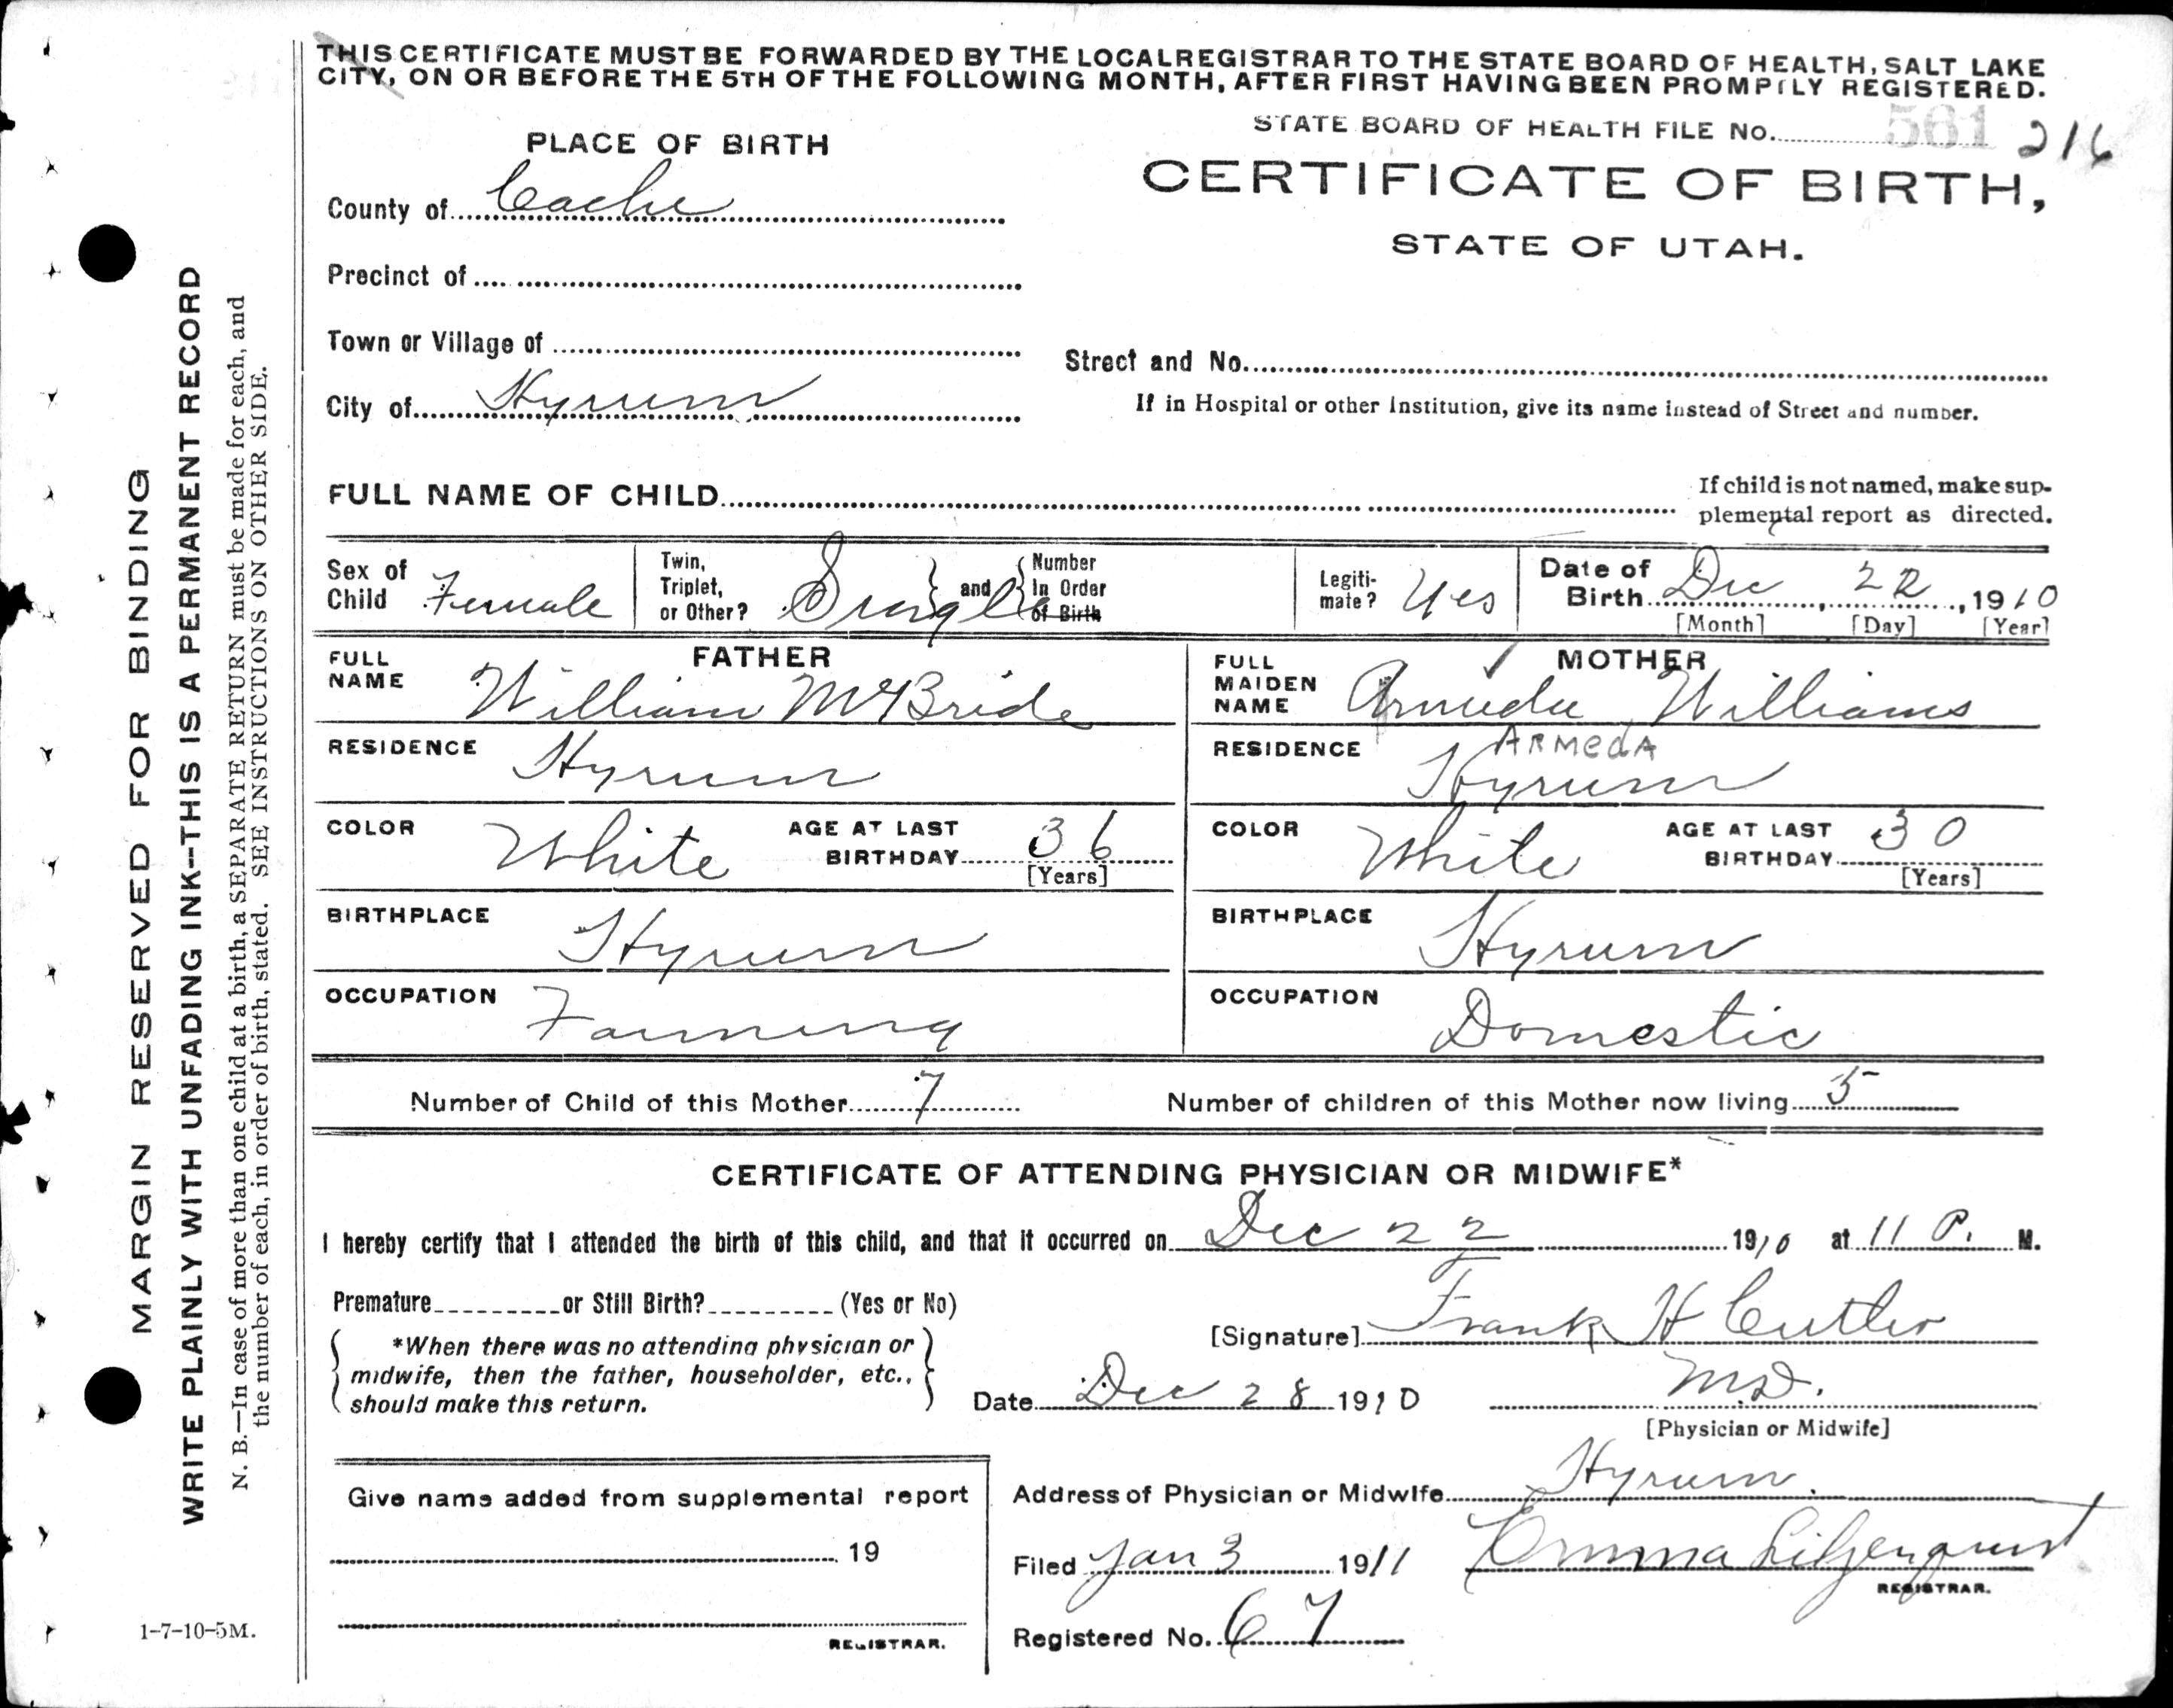 THIS CERTIFICATE MUST BE FORWARDED BY THE LOCAL REGISTRAR TO THE STATE BOARD OF HEALTH, SALT LAKE
CITY, ON OR BEFORE THE 5TH OF THE FOLLOWING MONTH, AFTER FIRST HAVING BEEN PROMPTLY REGISTERED.
STATE BOARD OF HEALTH FILE No. 561 216
PLACE OF BIRTH
CERTIFICATE OF BIRTH,
STATE OF UTAH.
County of Cache
Precinct of
Town or Village of
Street and No.
City of Hyrum
If in Hospital or other Institution, give its name instead of Street and number.
FULL NAME OF CHILD
If child is not named, make sup-
plemental report as directed.
Sex of Child Female
Twin, Triplet, or Other? Single and Number In Order of Birth
Legiti-mate? Yes
Date of Birth Dec 22, 1910
[Month] [Day] [Year]
FATHER
FULL NAME William McBride
RESIDENCE Hyrum
COLOR White AGE AT LAST BIRTHDAY 36
[Years]
BIRTHPLACE Hyrum
OCCUPATION Farming
MOTHER
FULL MAIDEN NAME Armeda Williams
ARMEdA
RESIDENCE Hyrum
COLOR White AGE AT LAST BIRTHDAY 30
[Years]
BIRTHPLACE Hyrum
OCCUPATION Domestic
Number of Child of this Mother 7 Number of children of this Mother now living 5
CERTIFICATE OF ATTENDING PHYSICIAN OR MIDWIFE*
I hereby certify that I attended the birth of this child, and that it occurred on Dec 22 1910 at 11 P. M.
Premature or Still Birth? (Yes or No)
*When there was no attending physician or
midwife, then the father, householder, etc.,
should make this return.
[Signature] Frank H Cutler
Date Dec 28 1910 MD.
[Physician or Midwife]
Give name added from supplemental report
19
REGISTRAR.
Address of Physician or Midwife Hyrum.
Filed Jan 3 1911 Emma Liljenquist
REGISTRAR.
Registered No. 67
MARGIN RESERVED FOR BINDING
WRITE PLAINLY WITH UNFADING INK--THIS IS A PERMANENT RECORD
N. B.—In case of more than one child at a birth, a SEPARATE RETURN must be made for each, and
the number of each, in order of birth, stated. SEE INSTRUCTIONS ON OTHER SIDE.
1-7-10-5M.